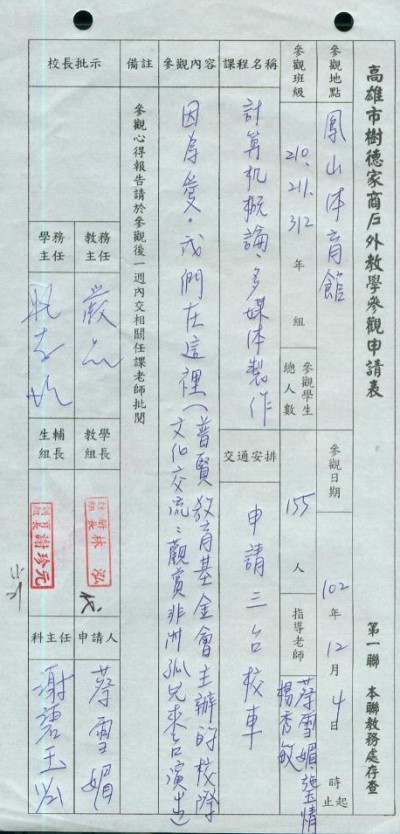 高雄市樹德家商戶外教學參觀申請表
第一聯 本聯教務處存查
參觀地點 鳳山体育館
參觀日期 102年12月4日 時 起止
參觀班級 210、211、312 年 組
參觀學生總人數 155 人
指導老師 蔡雪媚 楊秀敏
課程名稱 計算机概論、多媒体製作
交通安排 申請三台校車
參觀內容 因為愛,我們在這裡(普賢教育基金會主辦的校際
文化交流:觀賞非洲孤兒來台演出)
備註 參觀心得報告請於參觀後一週內交相關任課老師批閱
校長批示
教務主任
學務主任
教學組長
生輔組長
申請人 蔡雪媚
科主任